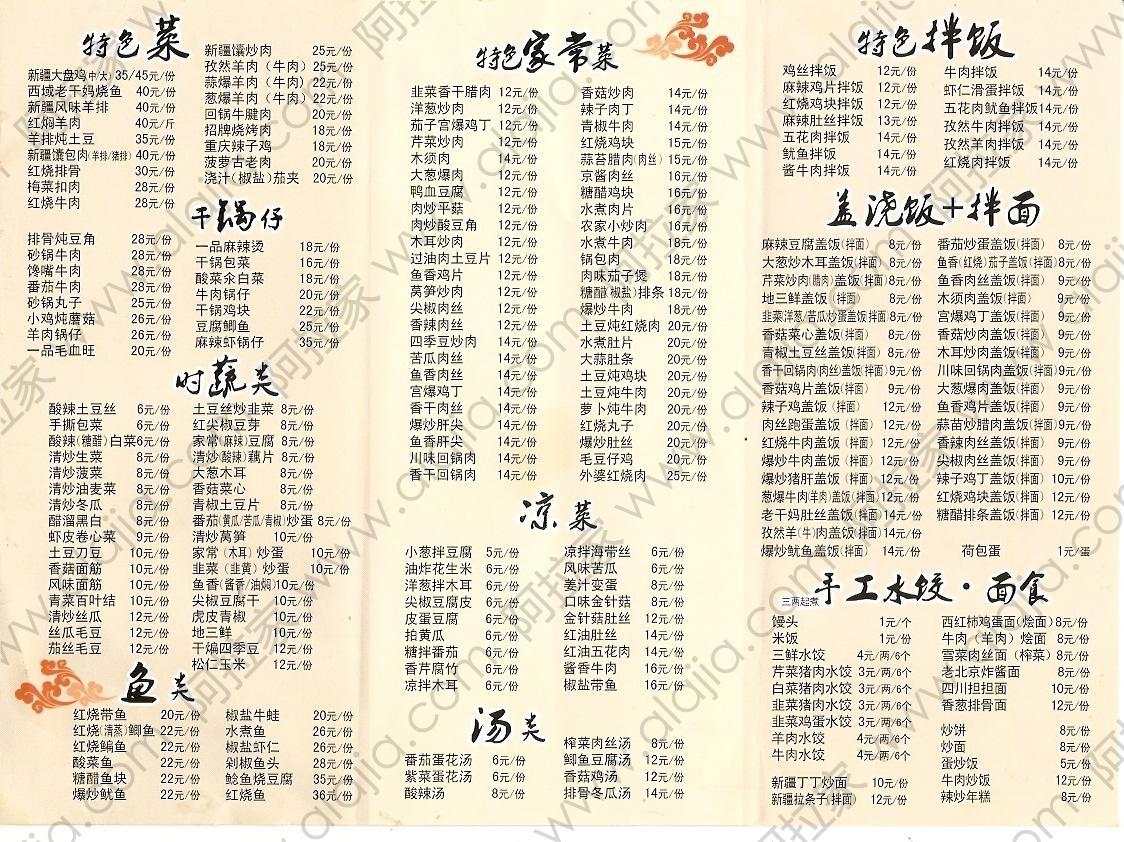 特色菜
新疆大盘鸡(中/大) 35/45元/份
西域老干妈烧鱼 40元/份
新疆风味羊排 40元/份
红焖羊肉 40元/斤
羊排炖土豆 35元/份
新疆馕包肉(羊排/猪排) 40元/份
红烧排骨 30元/份
梅菜扣肉 28元/份
红烧牛肉 28元/份
新疆馕炒肉 25元/份
孜然羊肉(牛肉) 25元/份
蒜爆羊肉(牛肉) 22元/份
葱爆羊肉(牛肉) 22元/份
回锅牛腱肉 20元/份
招牌烧烤肉 18元/份
重庆辣子鸡 18元/份
菠萝古老肉 20元/份
浇汁(椒盐)茄夹 20元/份
干锅仔
排骨炖豆角 28元/份
砂锅牛肉 28元/份
馋嘴牛肉 28元/份
番茄牛肉 28元/份
砂锅丸子 25元/份
小鸡炖蘑菇 26元/份
羊肉锅仔 26元/份
一品毛血旺 20元/份
一品麻辣烫 18元/份
干锅包菜 16元/份
酸菜汆白菜 18元/份
牛肉锅仔 20元/份
干锅鸡块 22元/份
豆腐鲫鱼 25元/份
麻辣虾锅仔 35元/份
时蔬类
酸辣土豆丝 6元/份
手撕包菜 6元/份
酸辣(糖醋)白菜 6元/份
清炒生菜 8元/份
清炒菠菜 8元/份
清炒油麦菜 8元/份
清炒冬瓜 8元/份
醋溜黑白 8元/份
虾皮卷心菜 9元/份
土豆刀豆 10元/份
香菇面筋 10元/份
风味面筋 10元/份
青菜百叶结 10元/份
清炒丝瓜 12元/份
丝瓜毛豆 12元/份
茄丝毛豆 12元/份
土豆丝炒韭菜 8元/份
红尖椒豆芽 8元/份
家常(麻辣)豆腐 8元/份
清炒(酸辣)藕片 8元/份
大葱木耳 8元/份
香菇菜心 8元/份
青椒土豆片 8元/份
番茄(黄瓜/苦瓜/青椒)炒蛋 8元/份
清炒莴笋 10元/份
家常(木耳)炒蛋 10元/份
韭菜(韭黄)炒蛋 10元/份
鱼香(酱香/油焖) 10元/份
尖椒豆腐干 10元/份
虎皮青椒 10元/份
地三鲜 10元/份
干煸四季豆 12元/份
松仁玉米 12元/份
鱼类
红烧带鱼 20元/份
红烧(清蒸)鲫鱼 22元/份
红烧鳊鱼 22元/份
酸菜鱼 22元/份
糖醋鱼块 22元/份
爆炒鱿鱼 22元/份
椒盐牛蛙 20元/份
水煮鱼 26元/份
椒盐虾仁 26元/份
剁椒鱼头 28元/份
鲶鱼烧豆腐 35元/份
红烧鱼 36元/份
特色家常菜
韭菜香干腊肉 12元/份
洋葱炒肉 12元/份
茄子宫爆鸡丁 12元/份
芹菜炒肉 12元/份
木须肉 14元/份
大葱爆肉 12元/份
鸭血豆腐 12元/份
肉炒平菇 12元/份
肉炒酸豆角 12元/份
木耳炒肉 12元/份
过油肉土豆片 12元/份
鱼香鸡片 12元/份
莴笋炒肉 12元/份
尖椒肉丝 12元/份
香辣肉丝 12元/份
四季豆炒肉 14元/份
苦瓜肉丝 14元/份
鱼香肉丝 14元/份
宫爆鸡丁 14元/份
香干肉丝 14元/份
爆炒肝尖 14元/份
鱼香肝尖 14元/份
川味回锅肉 14元/份
香干回锅肉 14元/份
香菇炒肉 14元/份
辣子肉丁 14元/份
青椒牛肉 14元/份
红烧鸡块 15元/份
蒜苔腊肉(肉丝) 15元/份
京酱肉丝 16元/份
糖醋鸡块 16元/份
水煮肉片 16元/份
农家小炒肉 16元/份
水煮牛肉 18元/份
锅包肉 18元/份
肉味茄子煲 18元/份
糖醋(椒盐)排条 18元/份
爆炒牛肉 18元/份
土豆炖红烧肉 20元/份
水煮肚片 20元/份
大蒜肚条 20元/份
土豆炖鸡块 20元/份
土豆炖牛肉 20元/份
萝卜炖牛肉 20元/份
红烧丸子 20元/份
爆炒肚丝 20元/份
毛豆仔鸡 20元/份
外婆红烧肉 25元/份
凉菜
小葱拌豆腐 5元/份
油炸花生米 6元/份
洋葱拌木耳 6元/份
尖椒豆腐皮 6元/份
皮蛋豆腐 6元/份
拍黄瓜 6元/份
糖拌番茄 6元/份
香芹腐竹 6元/份
凉拌木耳 6元/份
凉拌海带丝 6元/份
风味苦瓜 6元/份
姜汁变蛋 8元/份
口味金针菇 8元/份
金针菇肚丝 12元/份
红油肚丝 14元/份
红油五花肉 14元/份
酱香牛肉 16元/份
椒盐带鱼 16元/份
汤类
番茄蛋花汤 6元/份
紫菜蛋花汤 6元/份
酸辣汤 8元/份
榨菜肉丝汤 8元/份
鲫鱼豆腐汤 12元/份
香菇鸡汤 12元/份
排骨冬瓜汤 14元/份
特色拌饭
鸡丝拌饭 12元/份
麻辣鸡片拌饭 12元/份
红烧鸡块拌饭 12元/份
麻辣肚丝拌饭 13元/份
五花肉拌饭 14元/份
鱿鱼拌饭 14元/份
酱牛肉拌饭 14元/份
牛肉拌饭 14元/份
虾仁滑蛋拌饭 14元/份
五花肉鱿鱼拌饭 14元/份
孜然牛肉拌饭 14元/份
孜然羊肉拌饭 14元/份
红烧肉拌饭 14元/份
盖浇饭+拌面
麻辣豆腐盖饭(拌面) 8元/份
大葱炒木耳盖饭(拌面) 8元/份
芹菜炒肉(腊肉)盖饭(拌面) 8元/份
地三鲜盖饭(拌面) 8元/份
韭菜洋葱/苦瓜炒蛋盖饭拌面 8元/份
香菇菜心盖饭(拌面) 8元/份
青椒土豆丝盖饭(拌面) 8元/份
香干回锅肉(肉丝)盖饭(拌面) 9元/份
香菇鸡片盖饭(拌面) 9元/份
辣子鸡盖饭(拌面) 12元/份
肉丝跑蛋盖饭(拌面) 12元/份
红烧牛肉盖饭(拌面) 12元/份
爆炒牛肉盖饭(拌面) 12元/份
爆炒猪肝盖饭(拌面) 12元/份
葱爆牛肉(羊肉)盖饭(拌面) 12元/份
老干妈肚丝盖饭(拌面) 14元/份
孜然羊(牛)肉盖饭(拌面) 14元/份
爆炒鱿鱼盖饭(拌面) 14元/份
番茄炒蛋盖饭(拌面) 8元/份
鱼香(红烧)茄子盖饭(拌面) 8元/份
鱼香肉丝盖饭(拌面) 9元/份
木须肉盖饭(拌面) 9元/份
宫爆鸡丁盖饭(拌面) 9元/份
香菇炒肉盖饭(拌面) 9元/份
木耳炒肉盖饭(拌面) 9元/份
川味回锅肉盖饭(拌面) 9元/份
大葱爆肉盖饭(拌面) 9元/份
鱼香鸡片盖饭(拌面) 9元/份
蒜苗炒腊肉盖饭(拌面) 9元/份
香辣肉丝盖饭(拌面) 9元/份
尖椒肉丝盖饭(拌面) 9元/份
辣子鸡丁盖饭(拌面) 10元/份
红烧鸡块盖饭(拌面) 12元/份
糖醋排条盖饭(拌面) 12元/份
荷包蛋 1元/蛋
手工水饺·面食
三两起煮
馒头 1元/个
米饭 1元/份
三鲜水饺 4元/两/6个
芹菜猪肉水饺 3元/两/6个
白菜猪肉水饺 3元/两/6个
韭菜猪肉水饺 3元/两/6个
韭菜鸡蛋水饺 3元/两/6个
羊肉水饺 4元/两/6个
牛肉水饺 4元/两/6个
新疆丁丁炒面 10元/份
新疆拉条子(拌面) 12元/份
西红柿鸡蛋面(烩面) 8元/份
牛肉(羊肉)烩面 8元/份
雪菜肉丝面(榨菜) 8元/份
老北京炸酱面 8元/份
四川担担面 10元/份
香葱排骨面 12元/份
炒饼 8元/份
炒面 8元/份
蛋炒饭 5元/份
牛肉炒饭 12元/份
辣炒年糕 8元/份
阿拉家 www.alajia.com